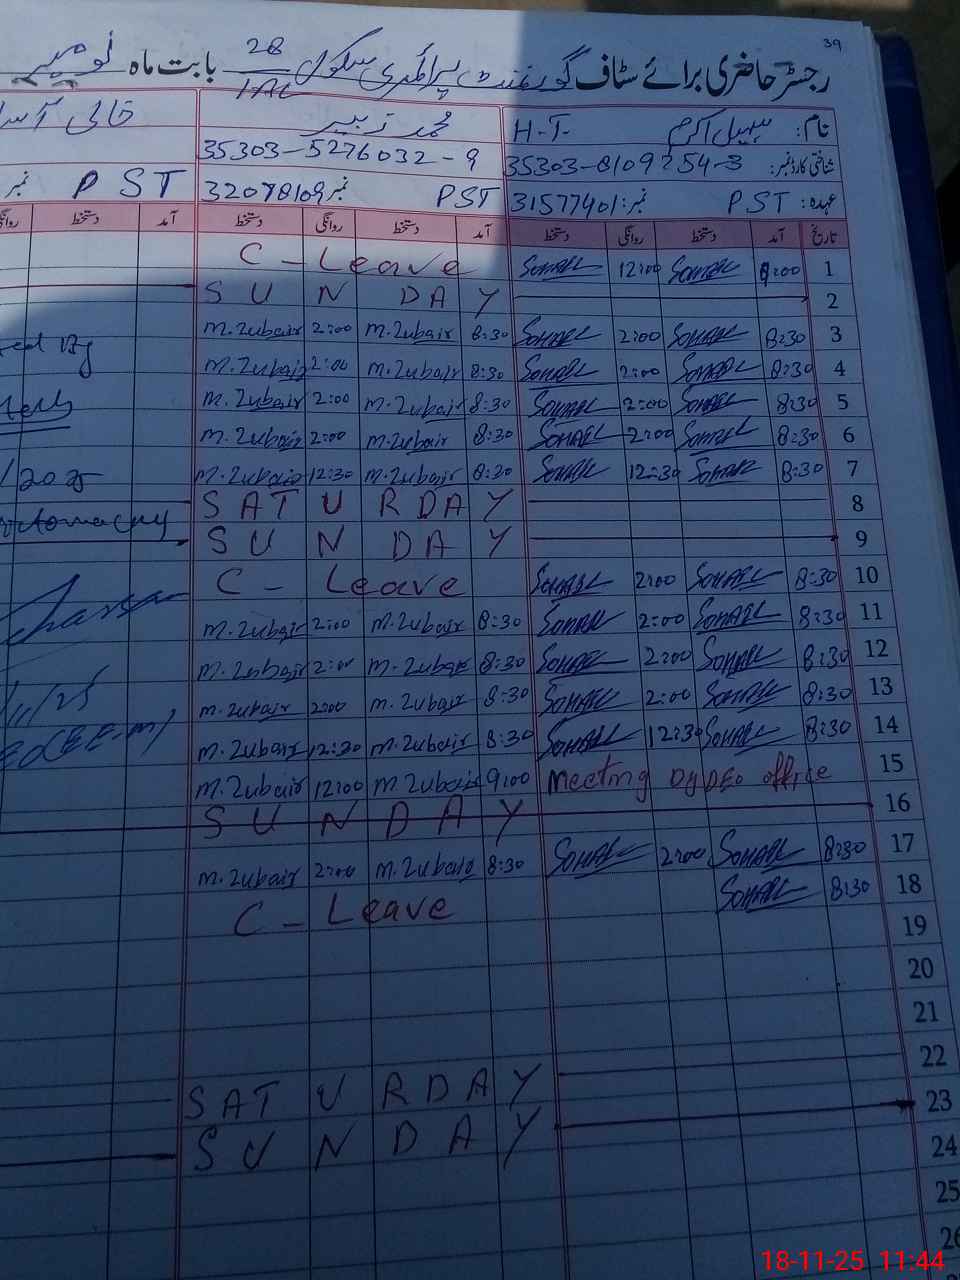 39
رجسٹر حاضری برائے سٹاف گورنمنٹ پرائمری سکول 28/1AL بابت ماہ نومبر
نام: سہیل اکرم H-T- محمد زبیر خالی
شناختی کارڈ نمبر: 35303-8109254-3 35303-5276032-9
عہدہ: PST نمبر: 31577401 PST نمبر 32078109 PST نمبر
تاریخ آمد دستخط روانگی دستخط آمد دستخط روانگی دستخط آمد دستخط روانگی
1 9:00 SOHAEL 12:00 SOHAEL C - Leave
2 SUNDAY
3 8:30 SOHAEL 2:00 SOHAEL 8:30 M.Zubair 2:00 M.Zubair
4 8:30 SOHAEL 2:00 SOHAEL 8:30 M.Zubair 2:00 M.Zubair
5 8:30 SOHAEL 2:00 SOHAEL 8:30 M.Zubair 2:00 M.Zubair
6 8:30 SOHAEL 2:00 SOHAEL 8:30 M.Zubair 2:00 M.Zubair
7 8:30 SOHAEL 12:30 SOHAEL 8:30 M.Zubair 12:30 M.Zubair
8 SATURDAY
9 SUNDAY
10 8:30 SOHAEL 2:00 SOHAEL C - Leave
11 8:30 SOHAEL 2:00 SOHAEL 8:30 M.Zubair 2:00 M.Zubair
12 8:30 SOHAEL 2:00 SOHAEL 8:30 M.Zubair 2:00 M.Zubair
13 8:30 SOHAEL 2:00 SOHAEL 8:30 M.Zubair 2:00 M.Zubair
14 8:30 SOHAEL 12:30 SOHAEL 8:30 M.Zubair 12:30 M.Zubair
15 Meeting DyDEO office 9:00 M.Zubair 12:00 M.Zubair
16 SUNDAY
17 8:30 SOHAEL 2:00 SOHAEL 8:30 M.Zubair 2:00 M.Zubair
18 8:30 SOHAEL C - Leave
19
20
21
22 SATURDAY
23 SUNDAY
24
25
26
18-11-25 11:44